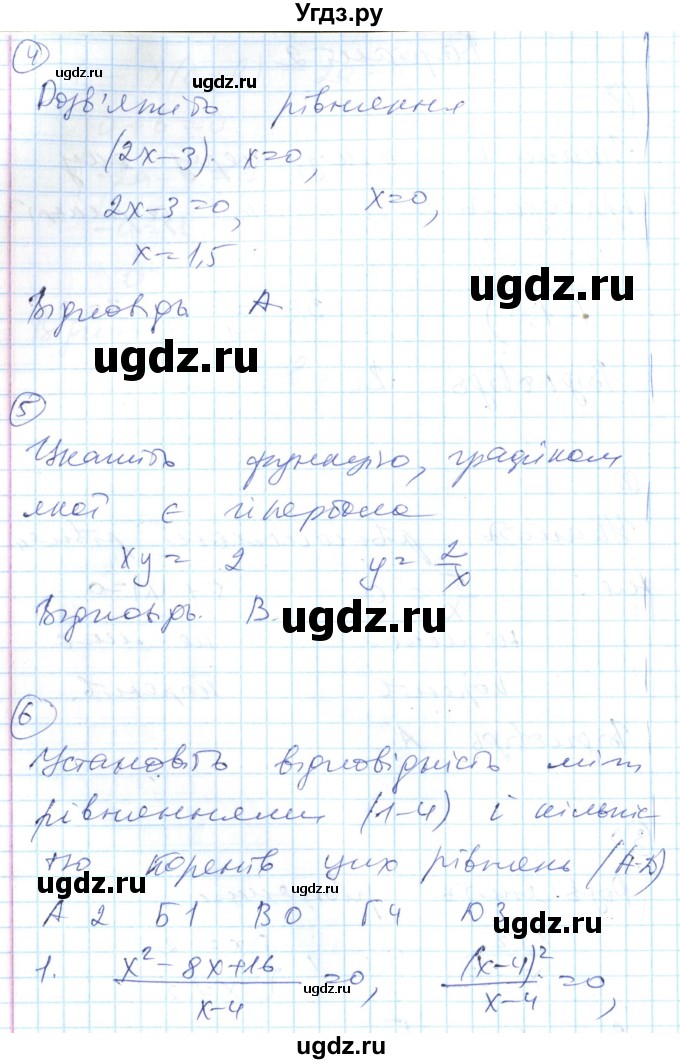 Угдз.ру
4
ugdz.ru ugdz.ru
Розв'яжіть рівняння
(2x-3)· x=0,
2x-3=0, x=0,
x=1,5
ugdz.ru
ugdz.ru
Відповідь А
ugdz.ru
5
Укажіть функцію, графіком
якої є гіпербола
xy = 2 y = 2/x
Відповідь. В.
ugdz.ru
6
Установіть відповідність між
рівняннями (1-4) і кількіс
тю коренів цих рівнянь (А-Д)
ugdz.ru
ugdz.ru
А 2 Б 1 В 0 Г 4 Д 3
1. (x²-8x+16)/(x-4) =0, (x-4)²/(x-4) =0,
ugdz.ru
ugdz.ru ugdz.ru